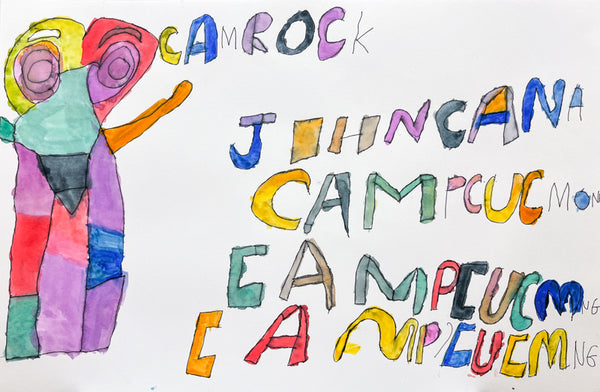 CAMROCK
JOHNCANA
CAMPCUCMON
CAMPCUCMNG
CAMPCUCMNG